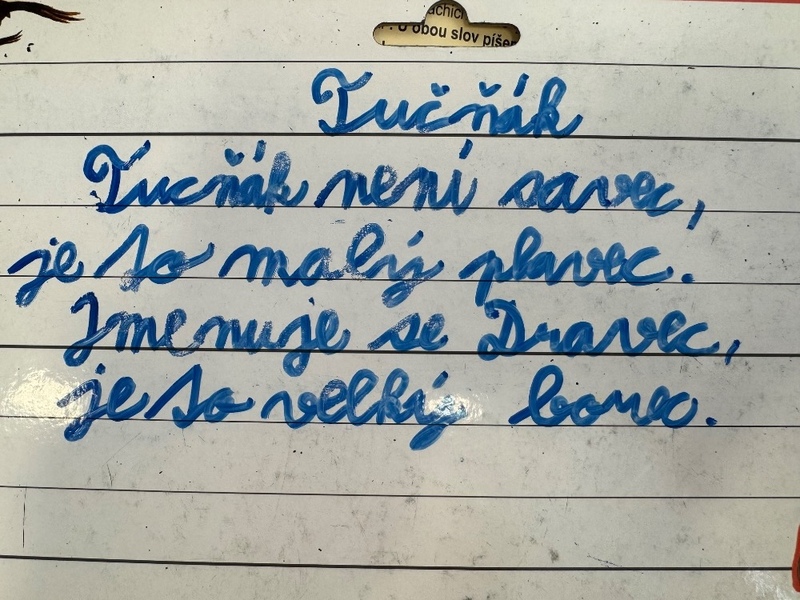 achici
u obou slov píšem
Tučňák
Tucňák není savec,
je to malý plavec.
Jmenuje se Dravec,
je to velký borec.